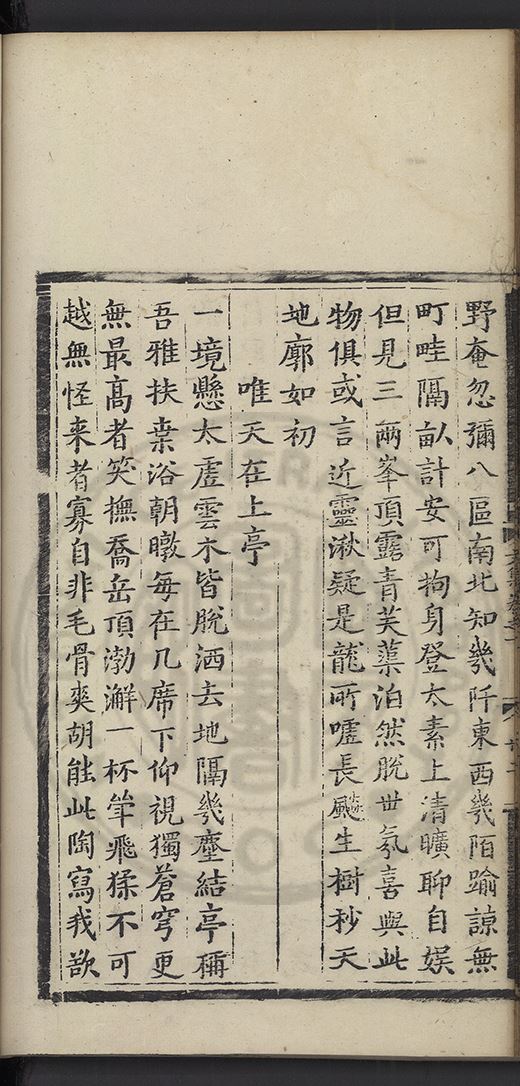 野奄忽彌八區南北知幾阡東西幾陌踰諒無
町畦隔畝計安可拘身登太素上清曠聊自娱
但見三兩峯頂露青芙蕖泊然脫世氛喜與此
物俱或言近靈湫疑是龍所噓長飈生樹杪天
地廓如初
唯天在上亭
一境懸太虛雲木皆脫洒去地隔幾塵結亭稱
吾雅扶桒浴朝暾每在几席下仰視獨蒼穹更
無最高者笑撫喬岳頂渤澥一杯
飛猱不可
越無怪来者寡自非毛骨爽胡能此陶寫我欲